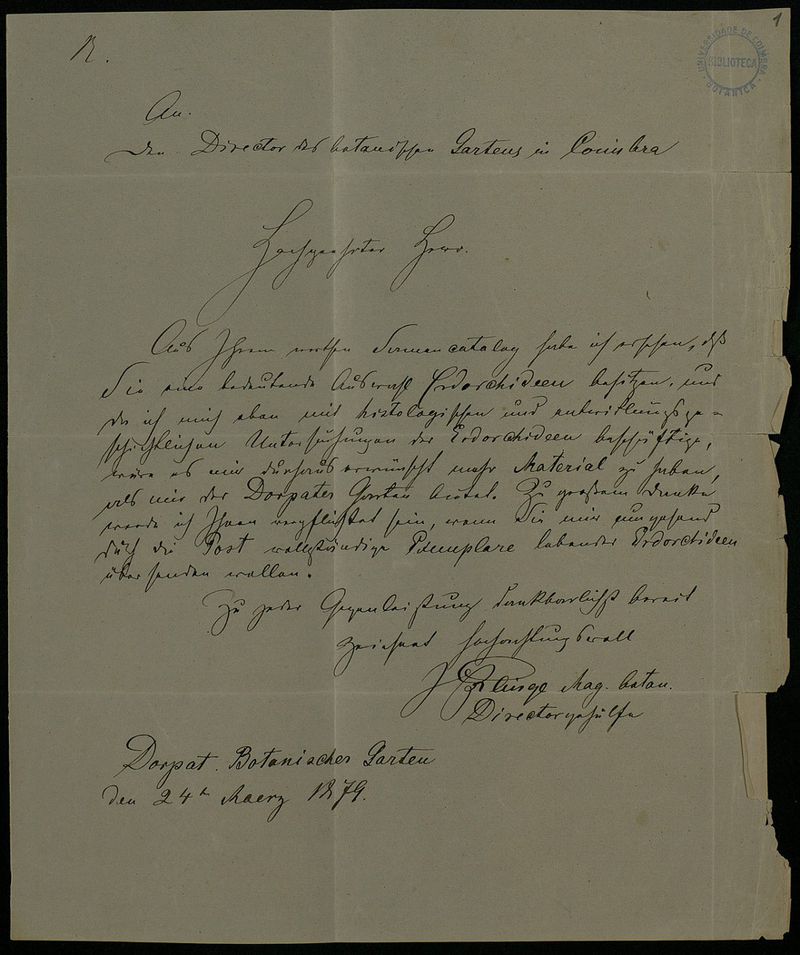 1
UNIVERSIDADE DE COIMBRA
BIBLIOTECA
BOTANICA
An
den Director des botanischen Gartens in Coimbra
Hochgeehrter Herr.
Aus Ihrem werthen Samencatalog habe ich ersehen, daß
Sie eine bedeutende Auswahl Erdorchideen besitzen, und
da ich mich eben mit histologischen und entwicklungsge-
schichtlichen Untersuchungen der Erdorchideen beschäftige,
wäre es mir durchaus erwünscht mehr Material zu haben,
als mir der Dorpater Garten bietet. Zu großem Danke
werde ich Ihnen verpflichtet sein, wenn Sie mir umgehend
durch die Post vollständige Exemplare lebender Erdorchideen
übersenden wollen.
Zu jeder Gegenleistung dankbarlichst bereit
zeichnet hochachtungsvoll
Klinge Mag. botan.
Directorgehülfe
Dorpat. Botanischer Garten
den 24 Maerz 1879.